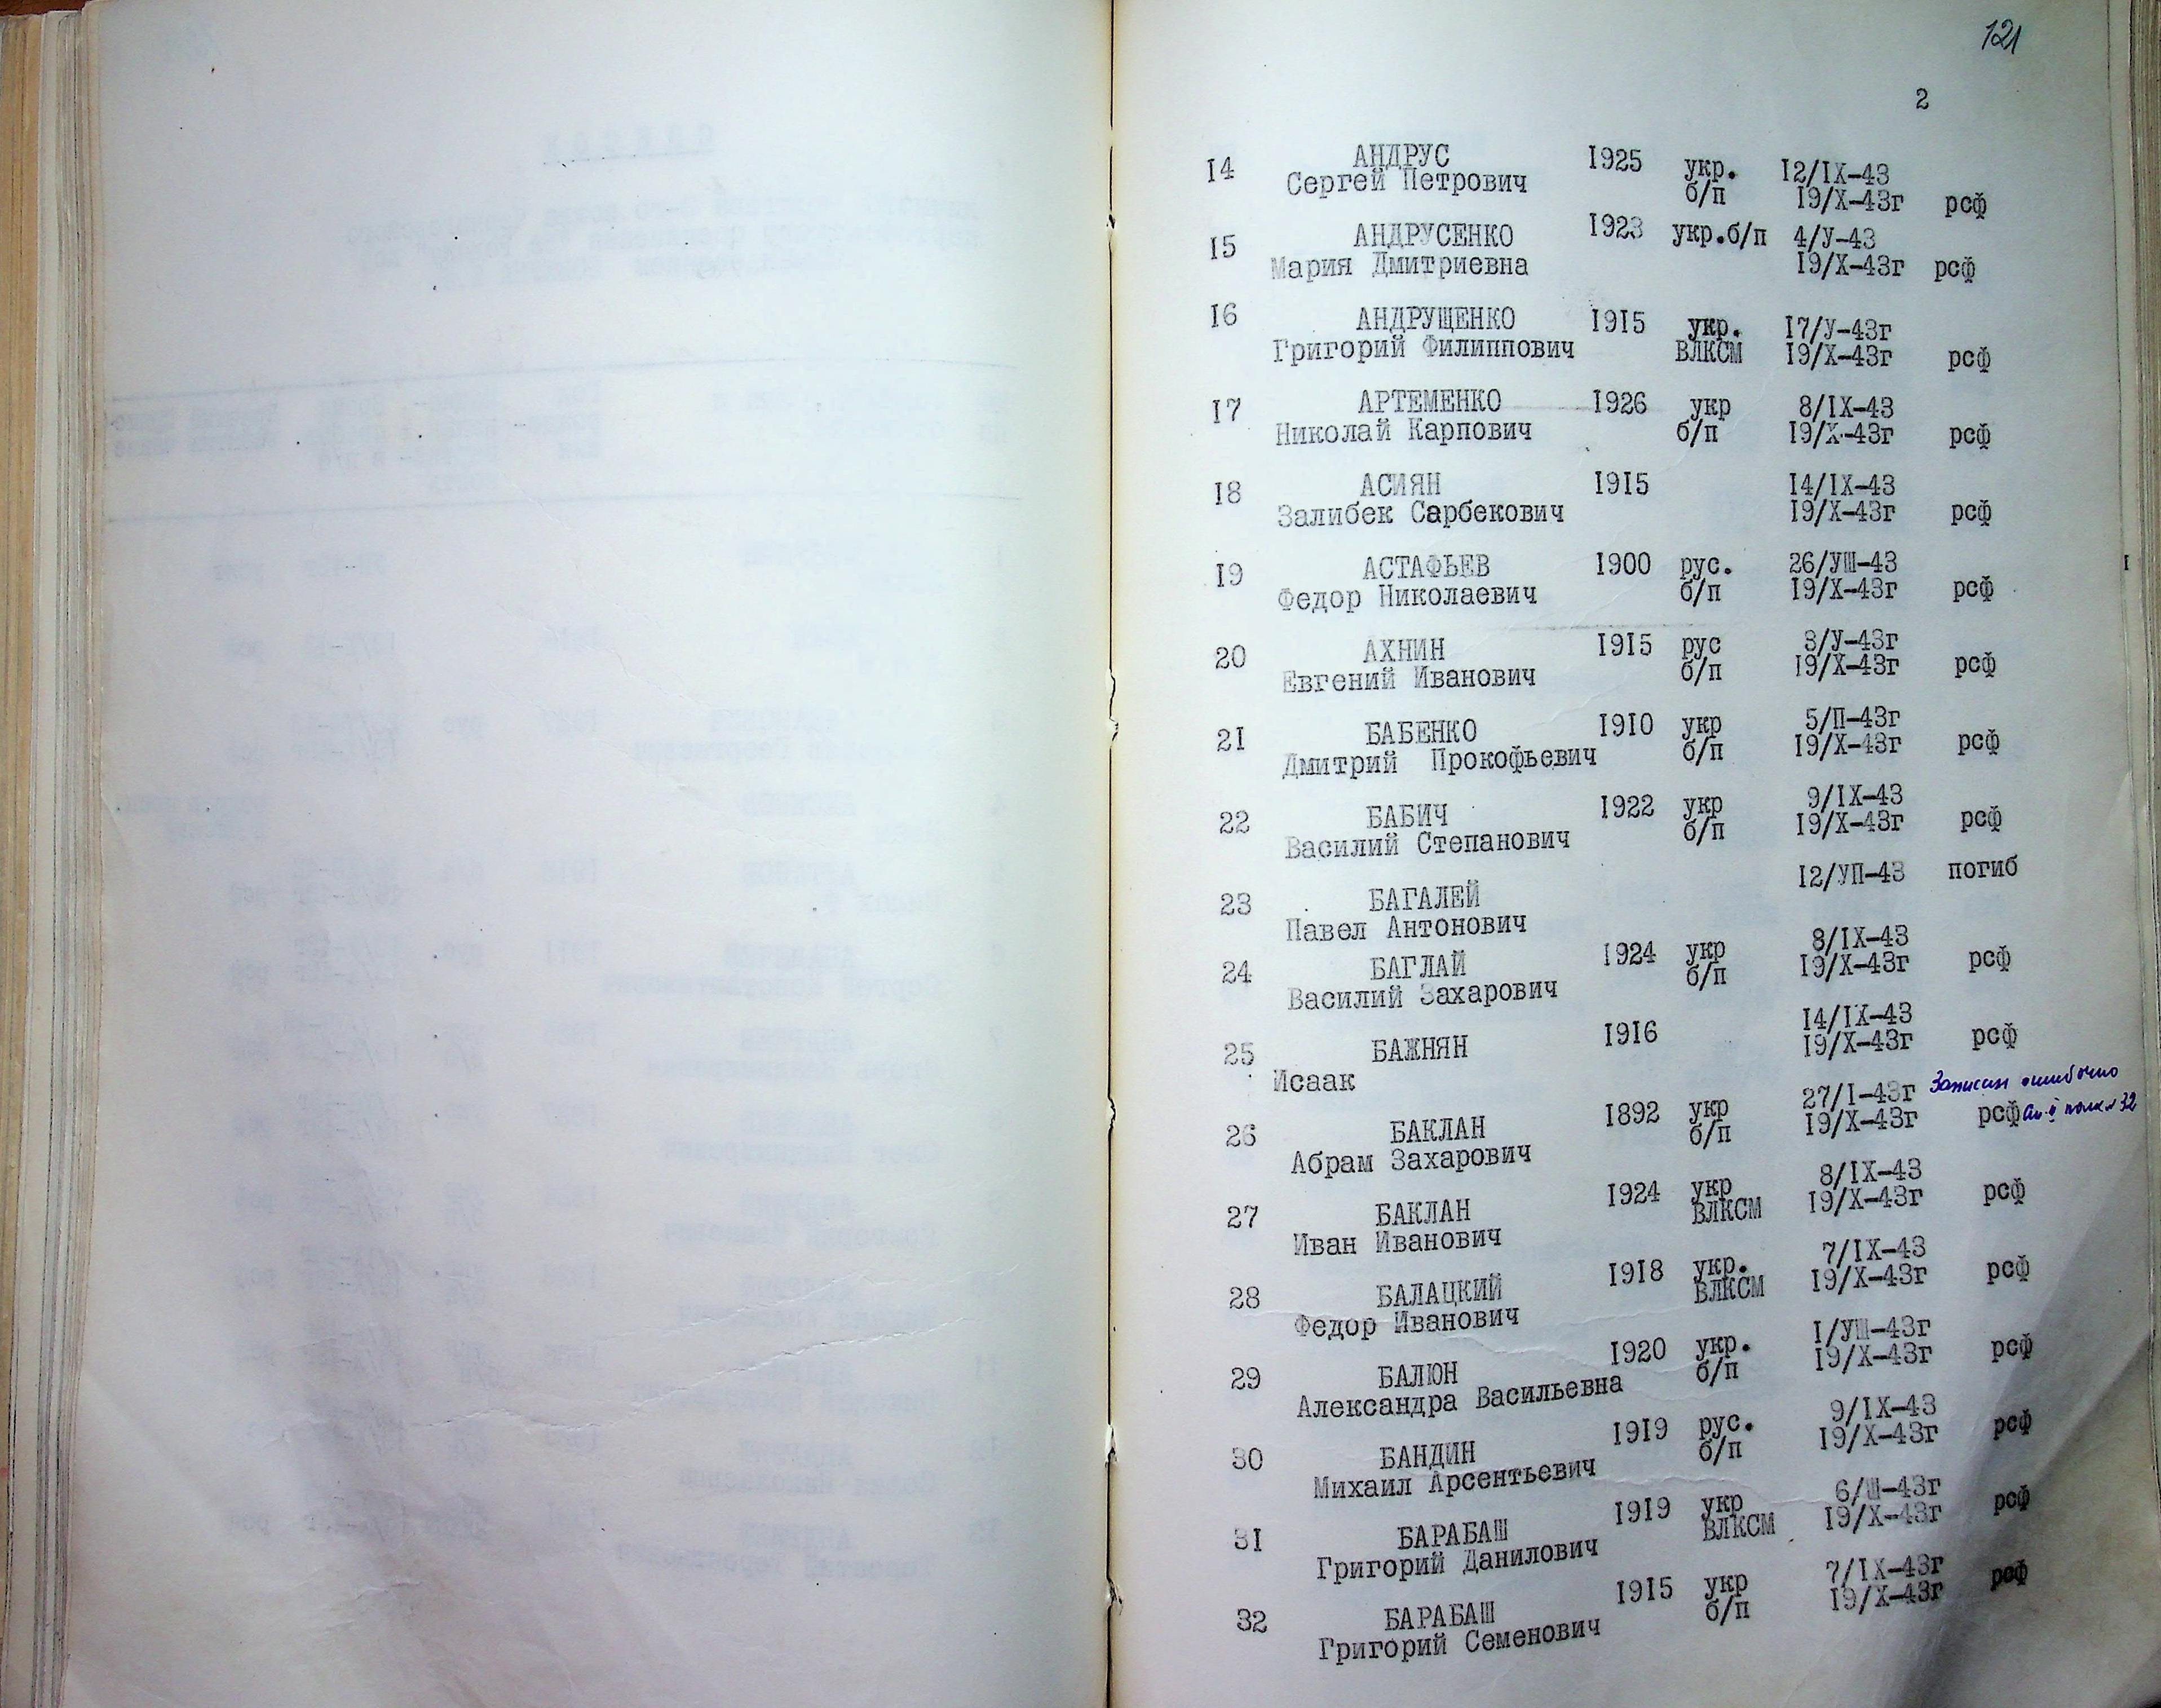 121
2
14 АНДРУС 1925 укр. 12/IX-43
Сергей Петрович б/п 19/X-43г рсф
15 АНДРУСЕНКО 1923 укр.б/п 4/У-43
Мария Дмитриевна 19/X-43г рсф
16 АНДРУЩЕНКО 1915 укр. 17/У-43г
Григорий Филиппович ВЛКСМ 19/X-43г рсф
17 АРТЕМЕНКО 1926 укр 8/IX-43
Николай Карпович б/п 19/X-43г рсф
18 АСИЯН 1915 14/IX-43
Залибек Сарбекович 19/X-43г рсф
19 АСТАФЬЕВ 1900 рус. 26/УШ-43
Федор Николаевич б/п 19/X-43г рсф
20 АХНИН 1915 рус 3/У-43г
Евгений Иванович б/п 19/X-43г рсф
21 БАБЕНКО 1910 укр 5/П-43г
Дмитрий Прокофьевич б/п 19/X-43г рсф
22 БАБИЧ 1922 укр 9/IX-43
Василий Степанович б/п 19/X-43г рсф
23 БАГАЛЕЙ 12/УП-43 погиб
Павел Антонович
24 БАГЛАЙ 1924 укр 8/IX-43
Василий Захарович б/п 19/X-43г рсф
25 БАЖНЯН 1916 14/IX-43
Исаак 19/X-43г рсф
26 БАКЛАН 1892 укр 27/I-43г Записан ошибочно
Абрам Захарович б/п 19/X-43г рсф 32
27 БАКЛАН 1924 укр 8/IX-43
Иван Иванович ВЛКСМ 19/X-43г рсф
28 БАЛАЦКИЙ 1918 укр. 7/IX-43
Федор Иванович ВЛКСМ 19/X-43г рсф
29 БАЛЮН 1920 укр. I/УШ-43г
Александра Васильевна б/п 19/X-43г рсф
30 БАНДИН 1919 рус. 9/IX-43
Михаил Арсентьевич б/п 19/X-43г рсф
31 БАРАБАШ 1919 укр 6/Ш-43г
Григорий Данилович ВЛКСМ 19/X-43г рсф
32 БАРАБАШ 1915 укр 7/IX-43г
Григорий Семенович б/п 19/X-43г рсф